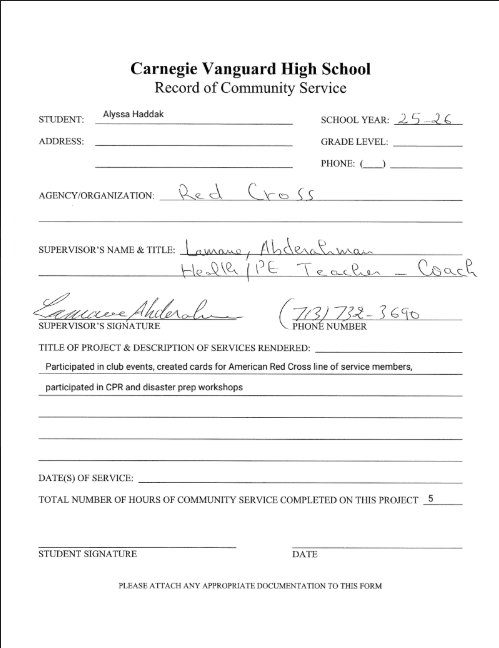 Carnegie Vanguard High School
Record of Community Service
STUDENT: Alyssa Haddak SCHOOL YEAR: 25-26
ADDRESS: GRADE LEVEL:
PHONE: ( )
AGENCY/ORGANIZATION: Red Cross
SUPERVISOR'S NAME & TITLE: Lamane, Abderahman
Health/PE Teacher - Coach
Lamane Abderah (713) 732-3690
SUPERVISOR'S SIGNATURE PHONE NUMBER
TITLE OF PROJECT & DESCRIPTION OF SERVICES RENDERED:
Participated in club events, created cards for American Red Cross line of service members,
participated in CPR and disaster prep workshops
DATE(S) OF SERVICE:
TOTAL NUMBER OF HOURS OF COMMUNITY SERVICE COMPLETED ON THIS PROJECT 5
STUDENT SIGNATURE DATE
PLEASE ATTACH ANY APPROPRIATE DOCUMENTATION TO THIS FORM